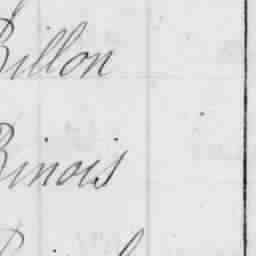 Billon
Binois